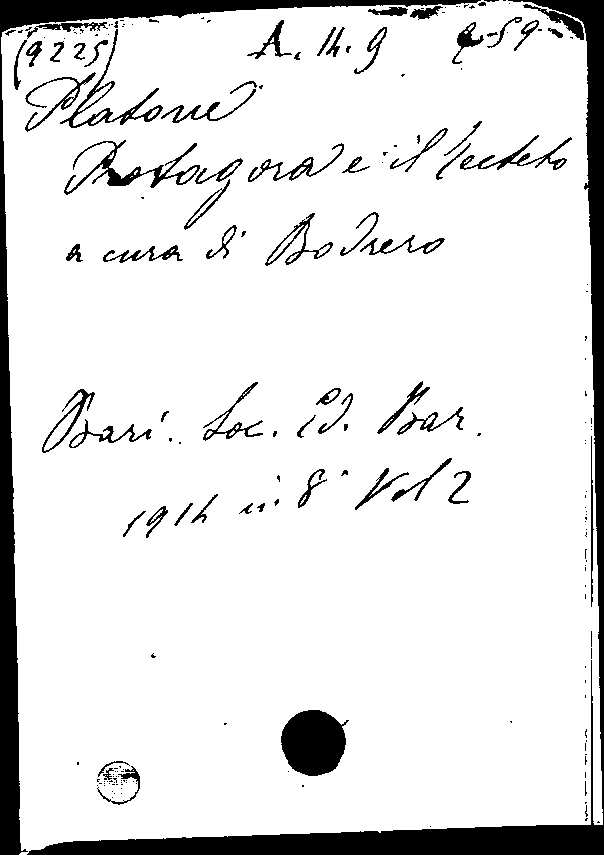 (9225) A. 14. 9 2-59-
Platone
Protagora e il Teeteto
a cura di Bodrero
Bari. Soc. Ed. Bar.
1914 in 8° Vol 2